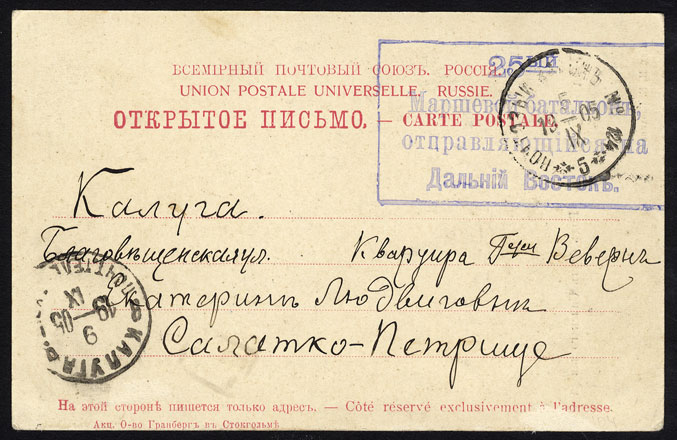 ВСЕМІРНЫЙ ПОЧТОВЫЙ СОЮЗЪ. РОССІЯ.
UNION POSTALE UNIVERSELLE. RUSSIE.
ОТКРЫТОЕ ПИСЬМО. — CARTE POSTALE.
25ЫЙ
Маршевой баталіонъ,
отправляющійся на
Дальній Востокъ.
5
19 05
IX
№ 104
5
Калуга.
Благовѣщенская ул. Квартира Г-жи Вевернъ
Екатеринѣ Людвиговнѣ
Салатко-Петрище
КАЛУГА
9
19 05
IX
На этой сторонѣ пишется только адресъ. — Côté réservé exclusivement à l'adresse.
Акц. О-во Гранбергъ въ Стокгольмѣ